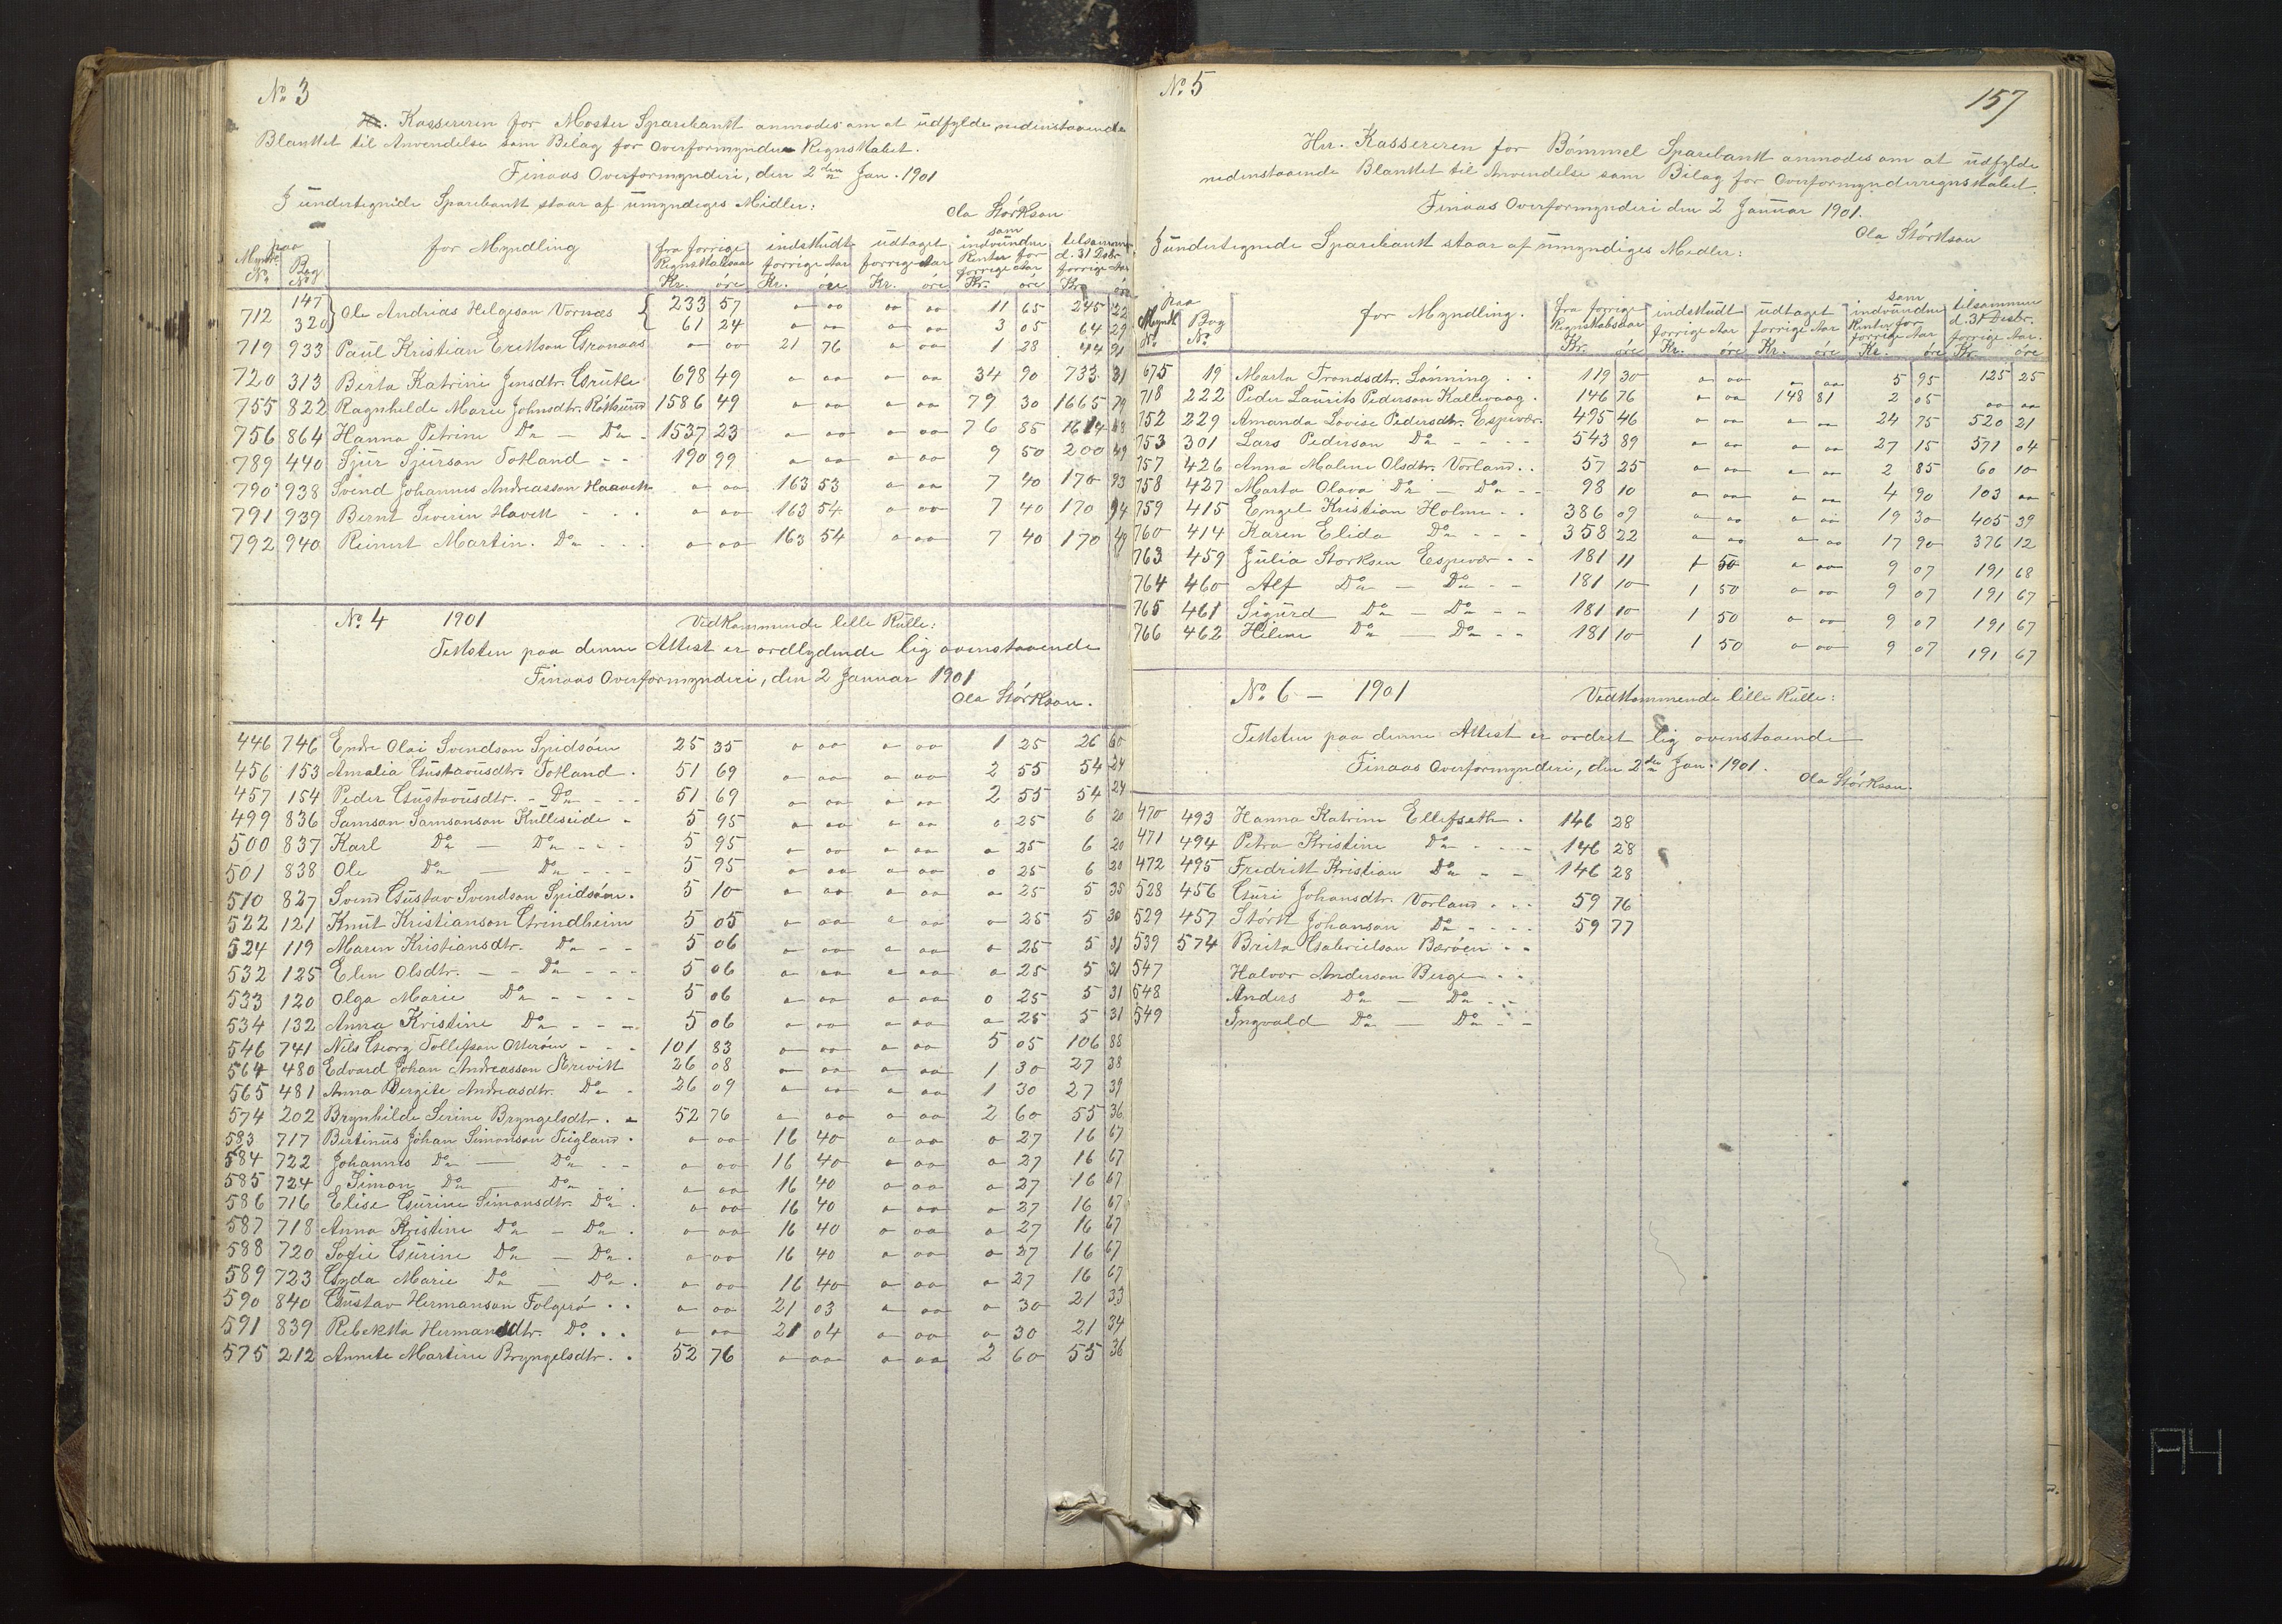 No 3
Hr. Kassereren for Moster Sparebank anmodes om at udfylde nedenstaaende
Blanket til Anvendelse som Bilag for Overformynder Regnskabet.
Finaas Overformynderi, den 2den Jan. 1901
Ola Störkson
I undertegnede Sparebank staar af umyndiges Midler:
paa Myndl. No | Bog No | for Myndling | fra forrige Regnskabsaar Kr. öre | indskudt forrige Aar Kr. öre | udtaget forrige Aar Kr. öre | som indvundne Renter for forrige Aar Kr. öre | tilsammen d. 31 Desbr. forrige Aar Kr. öre
712 147 Ole Andrias Helgeson Vornæs 233 57 o oo oo oo 11 65 245 22
320 61 24 o oo o oo 3 05 64 29
719 933 Paul Kristian Erikson Gronaas o oo 21 76 o oo 1 28 44 91
720 313 Berta Katrine Jensdtr. Grutle 698 49 o oo o oo 34 90 733 31
755 822 Ragnhilde Marie Johnsdtr. Röksund 1586 49 o oo o oo 79 30 1665 79
756 864 Hanna Petrine Do — Do 1537 23 o oo o oo 76 85 1614 08
789 440 Sjur Sjurson Totland - - 190 99 o oo o oo 9 50 200 49
790 938 Svend Johannes Andreasson Haavik o oo 163 53 o oo 7 40 170 93
791 939 Bernt Severin Havik - - - o oo 163 54 o oo 7 40 170 94
792 940 Reinert Martin. Do - - - o oo 163 54 o oo 7 40 170 49
No 4 1901 Vedkommende lille Rulle:
Teksten paa denne Attest er ordlydende lig ovenstaaende
Finaas Overformynderi, den 2 Januar 1901
Ola Störkson.
446 746 Endre Olai Svendson Spidsöen 25 35 o oo o oo 1 25 26 60
456 153 Amalia Gustavusdtr. Totland . 51 69 o oo o oo 2 55 54 24
457 154 Peder Gustavusdtr. - Do - - - 51 69 o oo o oo 2 55 54 24
499 836 Samson Samsonson Kulleseide - 5 95 o oo o oo o 25 6 20
500 837 Karl Do — Do - - - 5 95 o oo o oo o 25 6 20
501 838 Ole Do — Do - - - 5 95 o oo o oo o 25 6 20
510 827 Svend Gustav Svendson Spidsöen . 5 10 o oo o oo o 25 5 35
522 121 Knut Kristianson Grindheim 5 05 o oo o oo o 25 5 30
524 119 Maren Kristiansdtr. Do - - 5 06 o oo o oo o 25 5 31
532 125 Elen Olsdtr. - - Do - - - 5 06 o oo o oo o 25 5 31
533 120 Olga Marie Do - - - - 5 06 o oo o oo o 25 5 31
534 132 Anna Kristine Do - - - 5 06 o oo o oo o 25 5 31
546 741 Nils Georg Tollefson Otteröen - - - 101 83 o oo o oo 5 05 106 88
564 480 Edvard Johan Andreasson 26 08 o oo o oo 1 30 27 38
565 481 Anna Bergite Andreasdtr. Do - 26 09 o oo o oo 1 30 27 39
574 202 Brynhilde Serine Bryngelsdtr. - 52 76 o oo o oo 2 60 55 36
583 717 Bertinus Johan Simonson Tegland . o oo 16 40 o oo o 27 16 67
584 722 Johannes Do — Do - - o oo 16 40 o oo o 27 16 67
585 724 Simon Do — Do - . o oo 16 40 o oo o 27 16 67
586 716 Elise Gurine Simonsdtr. Do . o oo 16 40 o oo o 27 16 67
587 718 Anna Kristine Do - Do . o oo 16 40 o oo o 27 16 67
588 720 Sofie Gurine Do — Do . o oo 16 40 o oo o 27 16 67
589 723 Gyda Marie Do — Do . o oo 16 40 o oo o 27 16 67
590 840 Gustav Hermanson Folgerö . . o oo 21 03 o oo o 30 21 33
591 839 Rebekka Hermansdtr. Do . . o oo 21 04 o oo o 30 21 34
575 212 Annete Martine Bryngelsdtr. . 52 76 o oo o oo 2 60 55 36
No 5
157
Hr. Kassereren for Bömmel Sparebank anmodes om at udfylde
nedenstaaende Blanket til Anvendelse som Bilag for Overformynderregnskabet.
Finaas Overformynderi den 2 Januar 1901.
Ola Störkson
I undertegnede Sparebank staar af umyndiges Medler:
paa Myndl. No | Bog No | for Myndling. | fra forrige Regnskabsaar Kr. öre | indskudt forrige Aar Kr. öre | udtaget forrige Aar Kr. öre | som indvundne Renter for forrige Aar Kr. öre | tilsammen d. 31 Desbr. forrige Aar. Kr. öre
675 19 Marta Trondsdtr. Lönning . . 119 30 o oo o oo 5 95 125 25
718 222 Peder Laurits Pederson Kallevaag . 146 76 o oo 148 81 2 05 oo oo
752 229 Amanda Lovise Pedersdtr. Espevær. 495 46 o oo o oo 24 75 520 21
753 301 Lars Pederson Do - - - - 543 89 o oo o oo 27 15 571 04
757 426 Anna Malene Olsdtr. Vorland . . 57 25 o oo o oo 2 85 60 10
758 427 Marta Olava Do — Do - - 98 10 o oo o oo 4 90 103 oo
759 415 Engel Kristian Holme . . 386 09 o oo o oo 19 30 405 39
760 414 Karen Elida Do - - - 358 22 o oo o oo 17 90 376 12
763 459 Julia Storksen Espevær - - 181 11 1 50 o oo 9 07 191 68
764 460 Alf Do — Do - - 181 10 1 50 o oo 9 07 191 67
765 461 Sigurd Do — Do - - 181 10 1 50 o oo 9 07 191 67
766 462 Helene Do — Do - - 181 10 1 50 o oo 9 07 191 67
No 6 — 1901 Vedkommende lille Rulle:
Teksten paa denne Attest er ordret lig ovenstaaende
Finaas Overformynderi, den 2den Jan. 1901.
Ola Störkson.
470 493 Hanna Katrine Ellefsæth . 146 28
471 494 Petra Kristine Do - - - 146 28
472 495 Fredrik Kristian Do - - 146 28
528 456 Guri Johansdtr. Vorland . . . 59 76
529 457 Störk Johanson Do - - - - 59 77
539 574 Brita Gabrielson Bæröen - -
547 Halvor Anderson Berge - -
548 Anders Do — Do - -
549 Ingvald Do — Do - -
A4